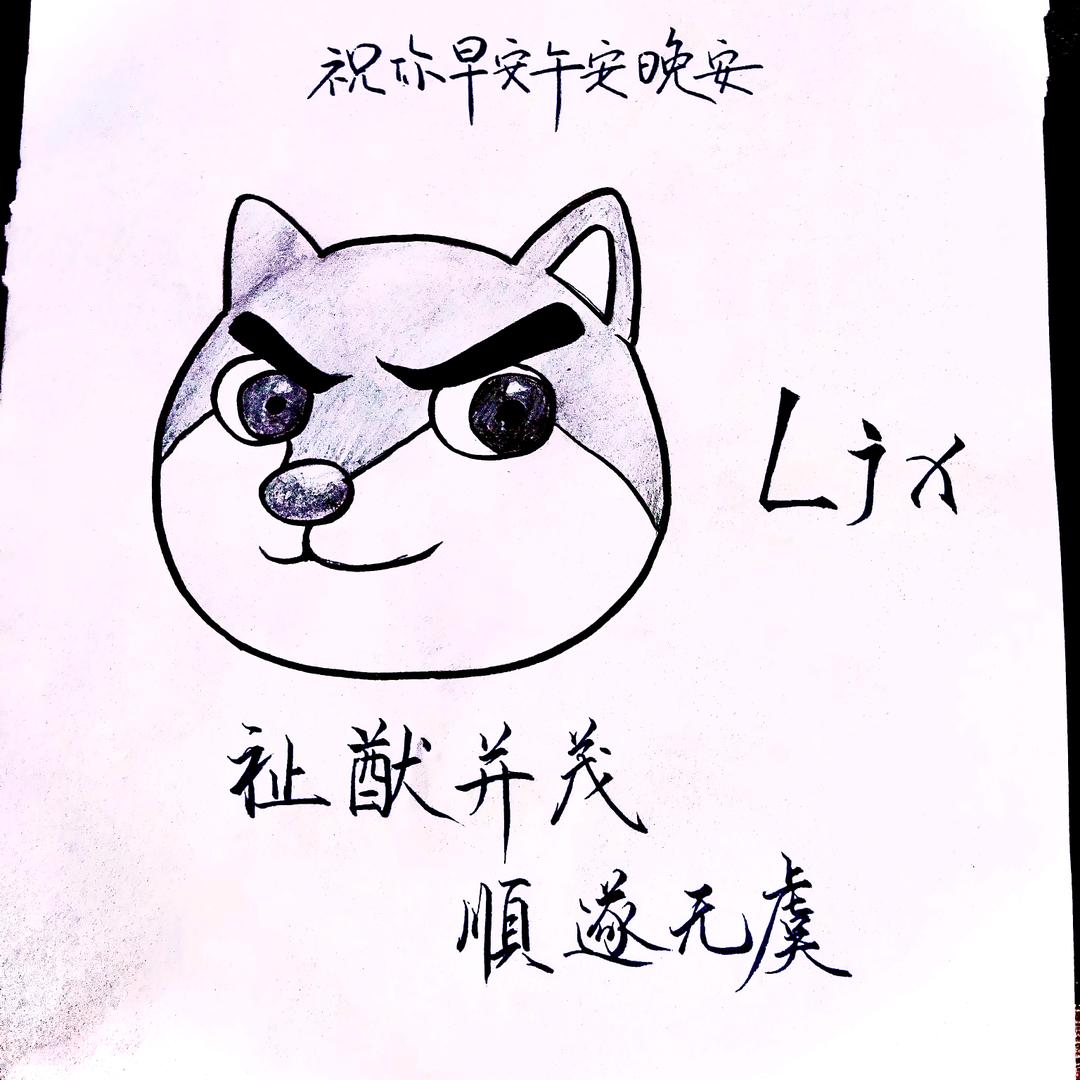 祝你早安午安晚安
Ljx
祉猷并茂
順遂无虞